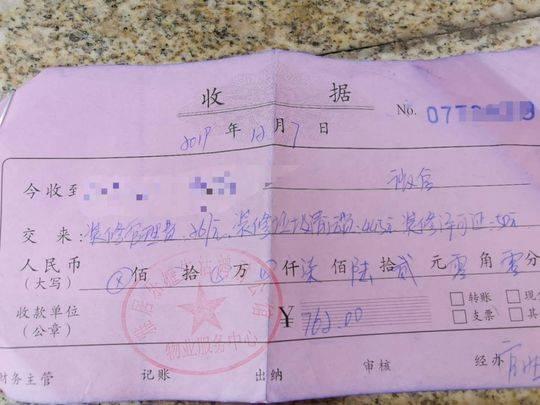 收 据
No. 077
2019 年 12 月 7 日
今收到 微信
交来：装修管理费 261元 装修垃圾清运费 装修许可证
人民币 ⊗佰 拾 万 仟 柒佰 陆拾 贰元 零角 零分
(大写)
收款单位 ¥ 762.00 转账 现
(公章) 支票 其
物业服务中心
财务主管 记账 出纳 审核 经办